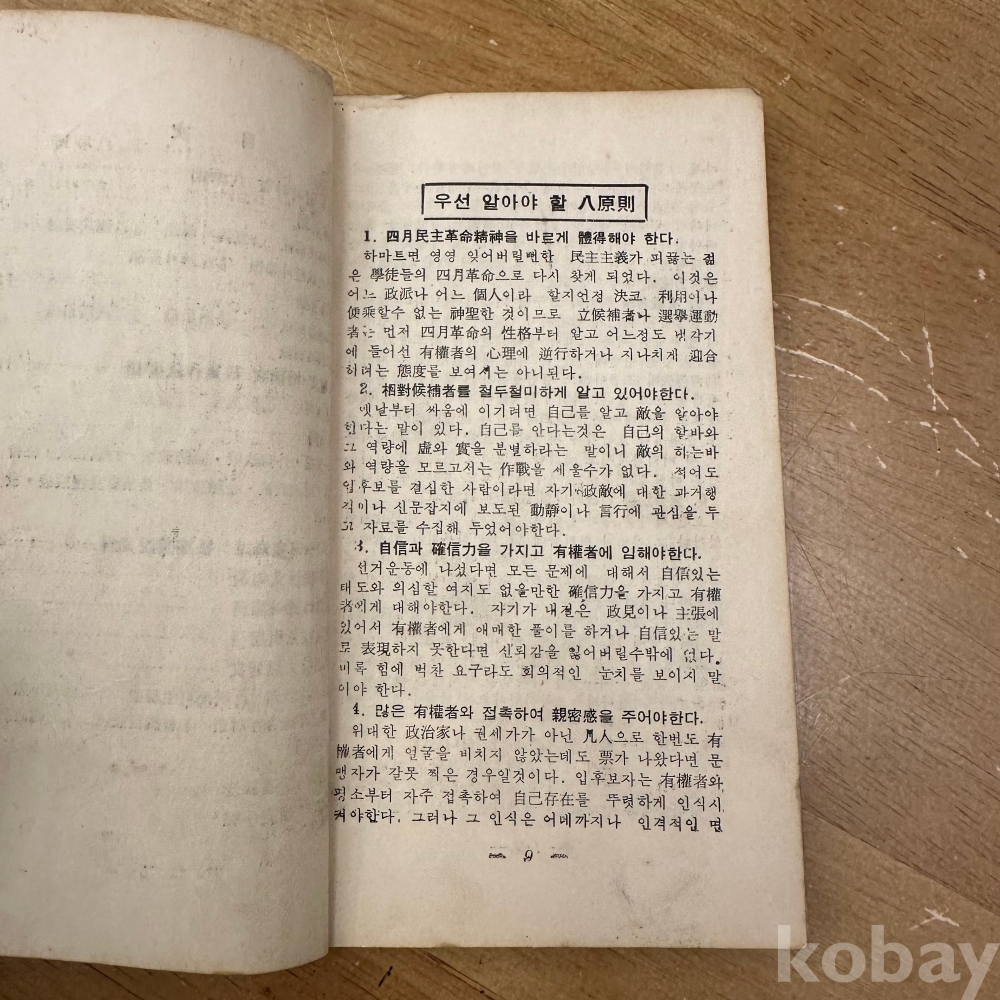 우선 알아야 할 八原則
1. 四月民主革命精神을 바르게 體得해야 한다.
하마트면 영영 잊어버릴뻔한 民主主義가 피끓는 젊
은 學徒들의 四月革命으로 다시 찾게 되었다. 이것은
어느 政派나 어느 個人이라 할지언정 決코 利用이나
便乘할수 없는 神聖한 것이므로 立候補者나 選擧運動
者는 먼저 四月革命의 性格부터 알고 어느정도 냉각기
에 들어선 有權者의 心理에 逆行하거나 지나치게 迎合
하려는 態度를 보여서는 아니된다.
2. 相對候補者를 철두철미하게 알고 있어야한다.
옛날부터 싸움에 이기려면 自己를 알고 敵을 알아야
한다는 말이 있다. 自己를 안다는것은 自己의 할바와
그 역량에 虛와 實을 분별하라는 말이니 敵의 하는바
와 역량을 모르고서는 作戰을 세울수가 없다. 적어도
입후보를 결심한 사람이라면 자기 政敵에 대한 과거행
적이나 신문잡지에 보도된 動靜이나 言行에 관심을 두
고 자료를 수집해 두었어야한다.
3. 自信과 確信力을 가지고 有權者에 임해야한다.
선거운동에 나섰다면 모든 문제에 대해서 自信있는
태도와 의심할 여지도 없을만한 確信力을 가지고 有權
者에게 대해야한다. 자기가 내걸은 政見이나 主張에
있어서 有權者에게 애매한 풀이를 하거나 自信있는 말
로 表現하지 못한다면 신뢰감을 잃어버릴수밖에 없다.
비록 힘에 벅찬 요구라도 회의적인 눈치를 보이지 말
아야 한다.
4. 많은 有權者와 접촉하여 親密感을 주어야한다.
위대한 政治家나 권세가가 아닌 凡人으로 한번도 有
權者에게 얼굴을 비치지 않았는데도 票가 나왔다면 문
맹자가 잘못 찍은 경우일것이다. 입후보자는 有權者와
평소부터 자주 접촉하여 自己存在를 뚜렷하게 인식시
켜야한다. 그러나 그 인식은 어데까지나 인격적인 면
— 9 —
kobay